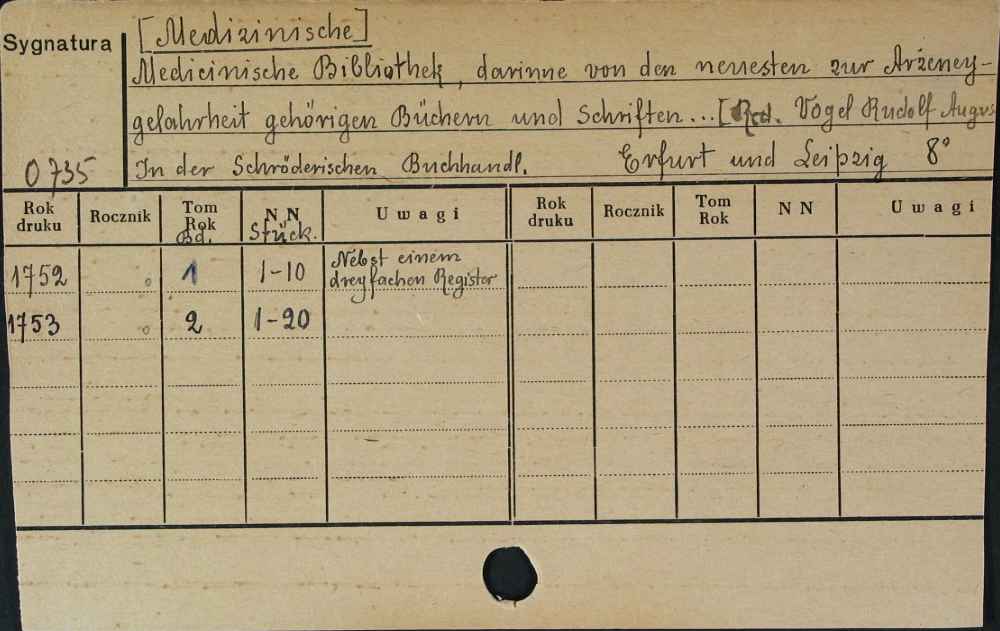 Sygnatura
[Medizinische]
Medicinische Bibliothek, darinne von den neuesten zur Arzeney-
gelahrheit gehörigen Büchern und Schriften...[Red. Vogel Rudolf Augus
0735
In der Schröderischen Buchhandl. Erfurt und Leipzig 8°
Rok druku Rocznik Tom Rok Bd. NN Stück. Uwagi Rok druku Rocznik Tom Rok NN Uwagi
1752 1 1-10 Nebst einem
dreyfachen Register
1753 2 1-20